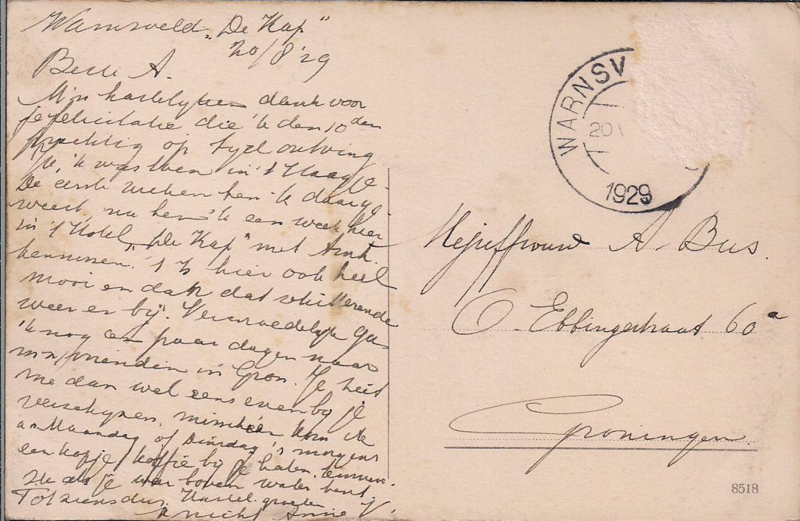 Warnsveld „De Kap"
20/8 '29
Beste A.
Mijn hartelijken dank voor
je felicitatie die 'k den 10den
prachtig op tijd ontving.
'k was toen in 't Haagje.
De eerste weken ben 'k daar ge-
weest, nu ben 'k een week hier
in 't Hotel „De Kap" met
kennissen. 't Is hier ook heel
mooi en dan dat schitterende
weer er bij. Vermoedelijk ga
'k nog een paar dagen naar
m'n vriendin in Gron. Je ziet
me dan wel eens even bij je
verschijnen, misschien kom ik
a.s. Maandag of Dinsdag 's morgens
een kopje koffie bij je halen,
als je weer boven water bent.
Tot ziens dus. Hartel. groeten
Anne V.
WARNSV
20
1929
Mejuffrouw A. Bus.
O. Ebbingestraat 60a
Groningen.
8518